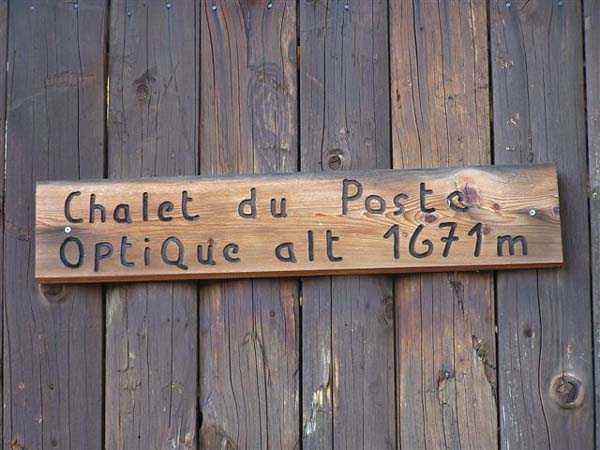 Chalet du Poste
OptiQue alt 1671m